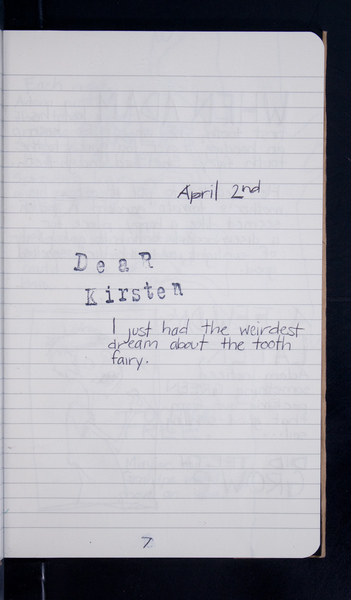 April 2nd
Dear
Kirsten
I just had the weirdest
dream about the tooth
fairy.
7